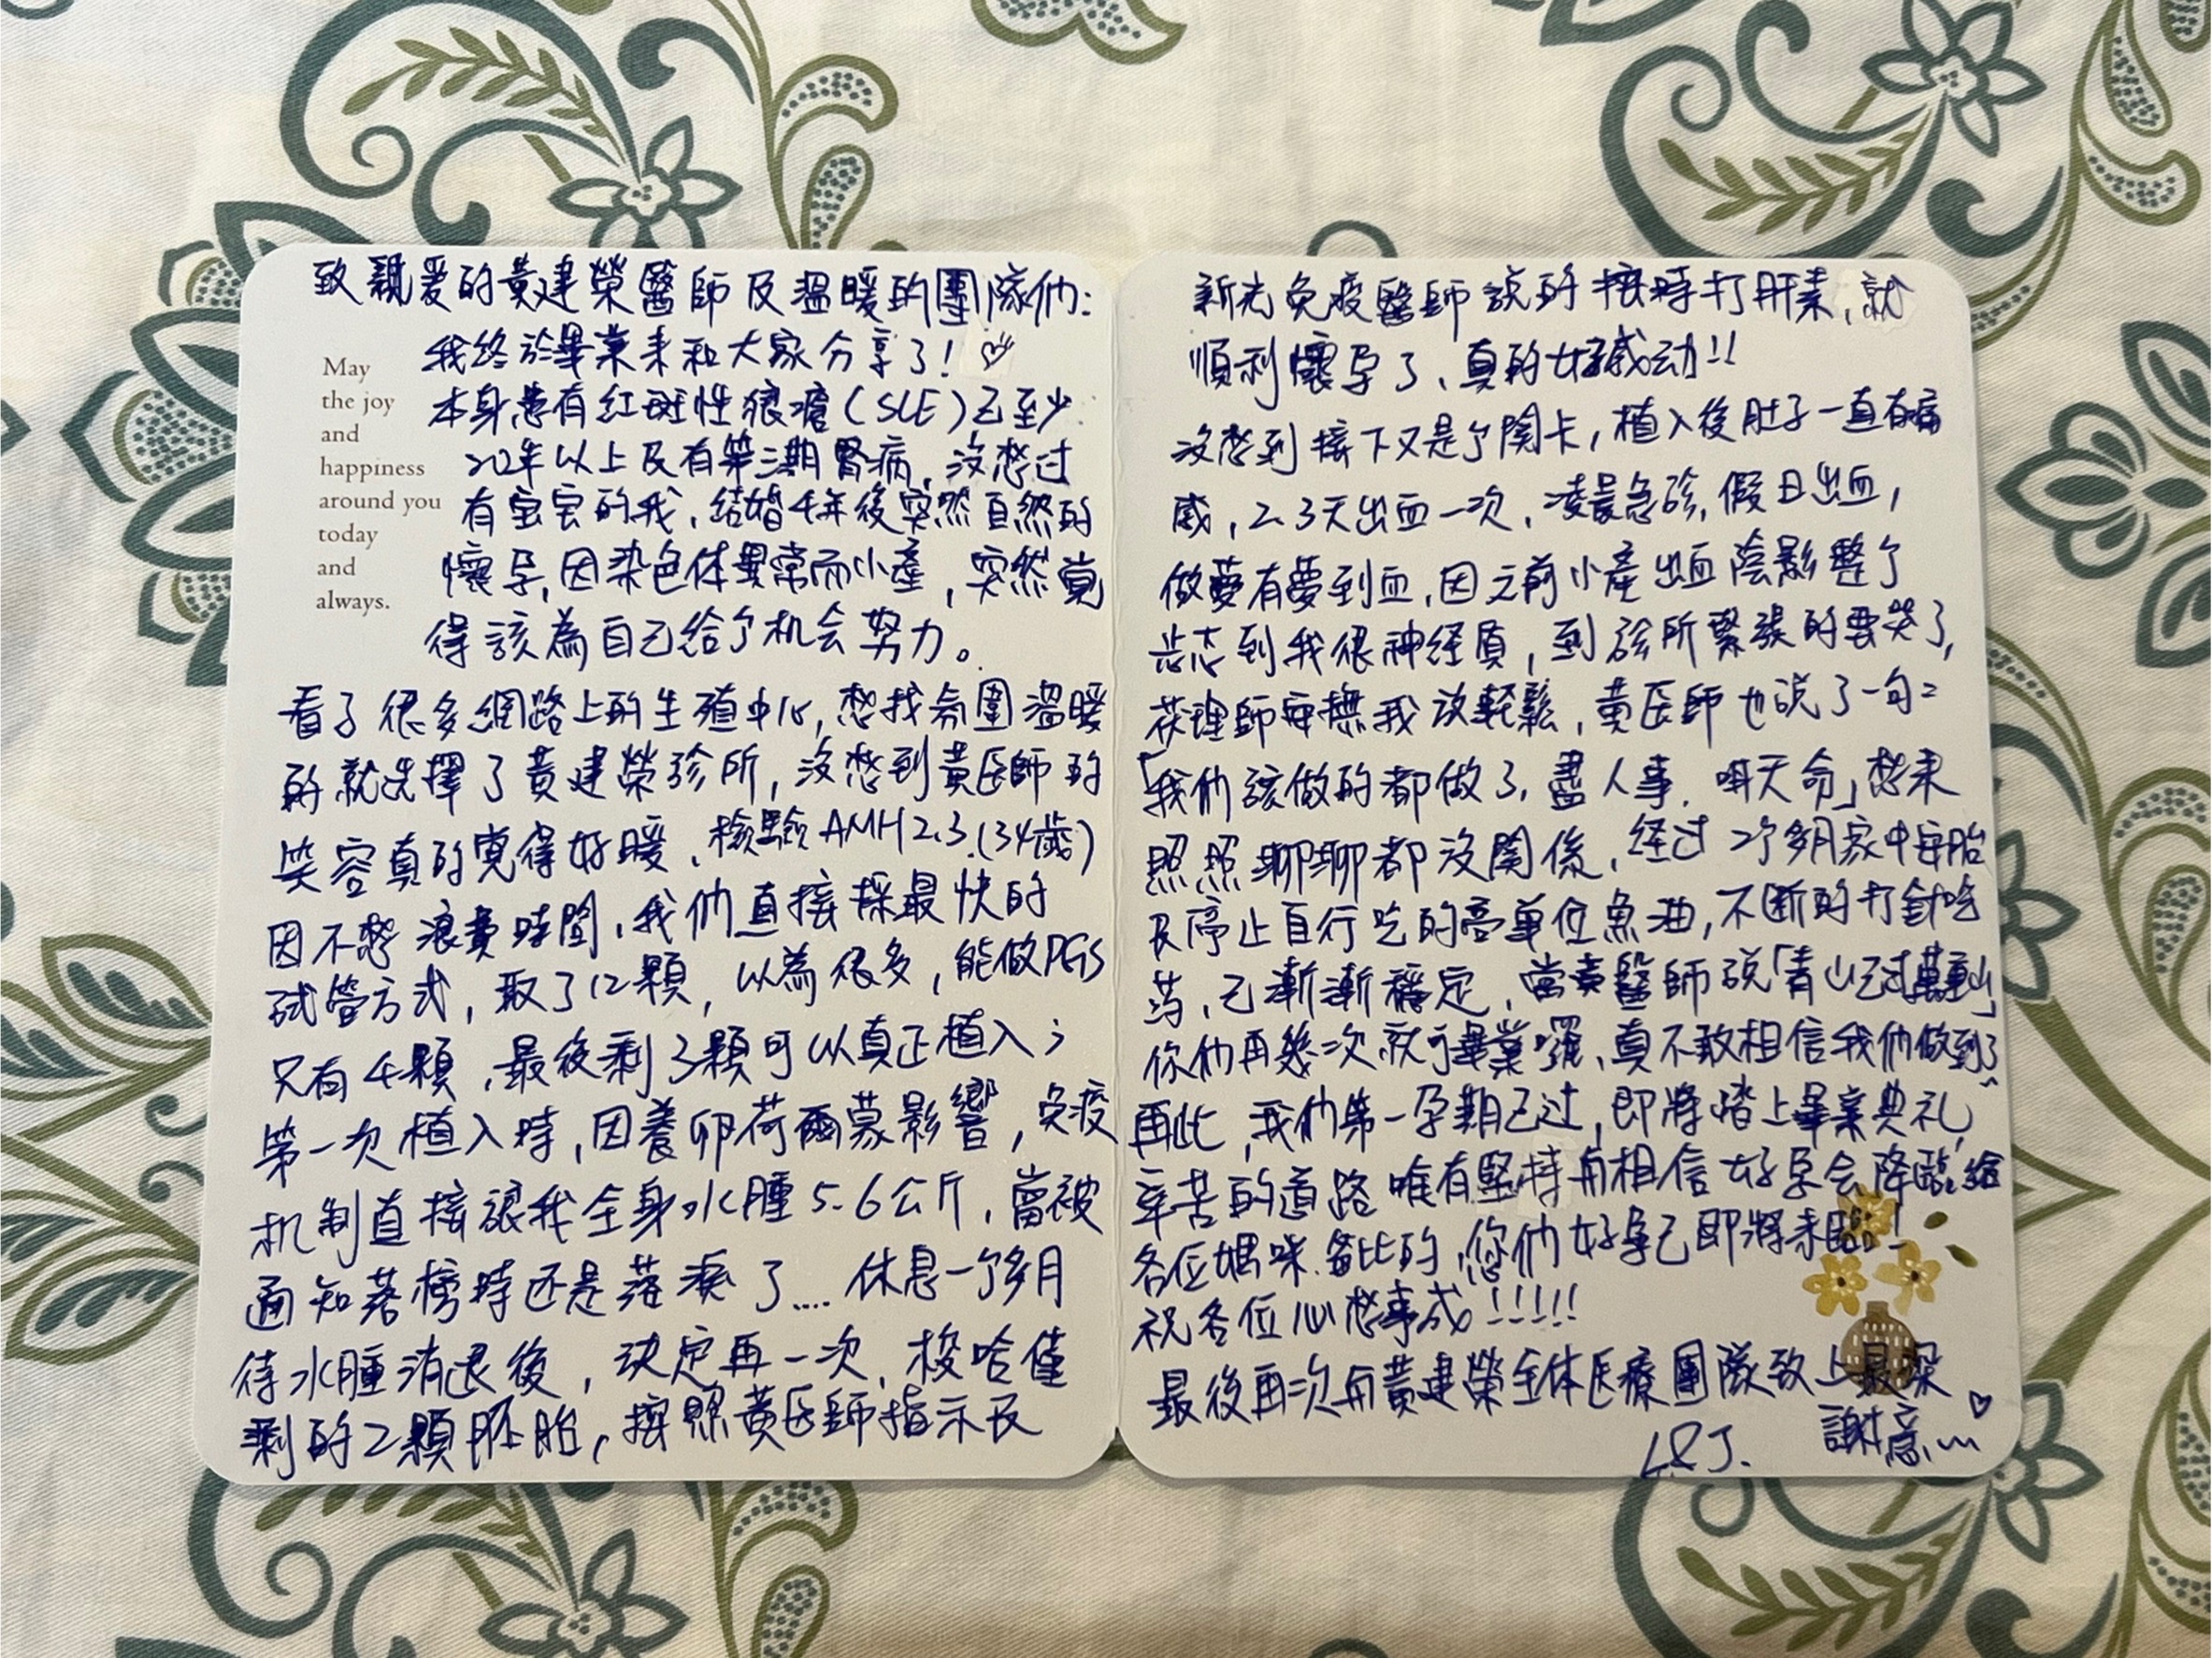 致親愛的黃建榮醫師及溫暖的團隊們:
我終於畢業來和大家分享了!
May
the joy
and
happiness
around you
today
and
always.
本身患有紅斑性狼瘡(SLE)已至少
20年以上及有第三期腎病,沒想过
有宝宝的我,結婚4年後突然自然的
懷孕,因染色体異常而小產,突然覺
得該為自己給了机会努力。
看了很多網路上的生殖中心,想找氛圍溫暖
的就选擇了黃建榮診所,沒想到黃医師的
笑容真的覺得好暖、檢驗AMH2.3.(34歲)
因不想浪費時間,我們直接採最快的
試管方式,取了12顆,以為很多,能做PGS
只有4顆,最後剩3顆可以真正植入;
第一次植入時,因養卵荷爾蒙影響,免疫
机制直接讓我全身水腫5.6公斤,當被
通知落榜時还是落淚了....休息一个多月
待水腫消退後,決定再一次,梭哈僅
剩的2顆胚胎,按照黃医師指示及
新光免疫醫師說的按時打肝素,就
順利懷孕了、真的好感动!!
沒想到接下又是个關卡,植入後肚子一直有痛
感,2.3天出血一次,凌晨急診,假日出血,
做夢有夢到血,因之前小產出血陰影整个
忐忑到我很神経質,到診所緊張的要哭了,
护理師安撫我放輕鬆,黃医師也說了一句:
「我們該做的都做了,盡人事.聽天命」想來
照照聊聊都沒關係,経过2个多月家中安胎
及停止自行吃的高單位魚油,不断的打針吃
药,已漸漸穩定,當黃醫師說「青山已过萬重山」
你們再幾次就可畢業囉、真不敢相信我們做到了~
再此,我們第一孕期已过,即將踏上畢業典礼,
辛苦的道路唯有堅持与相信好孕会降臨給
各位媽咪爸比的,您們好孕已即將來臨!
祝各位心想事成!!!!!
最後再次与黃建榮全体医療團隊致上最深
謝意...
L&J.